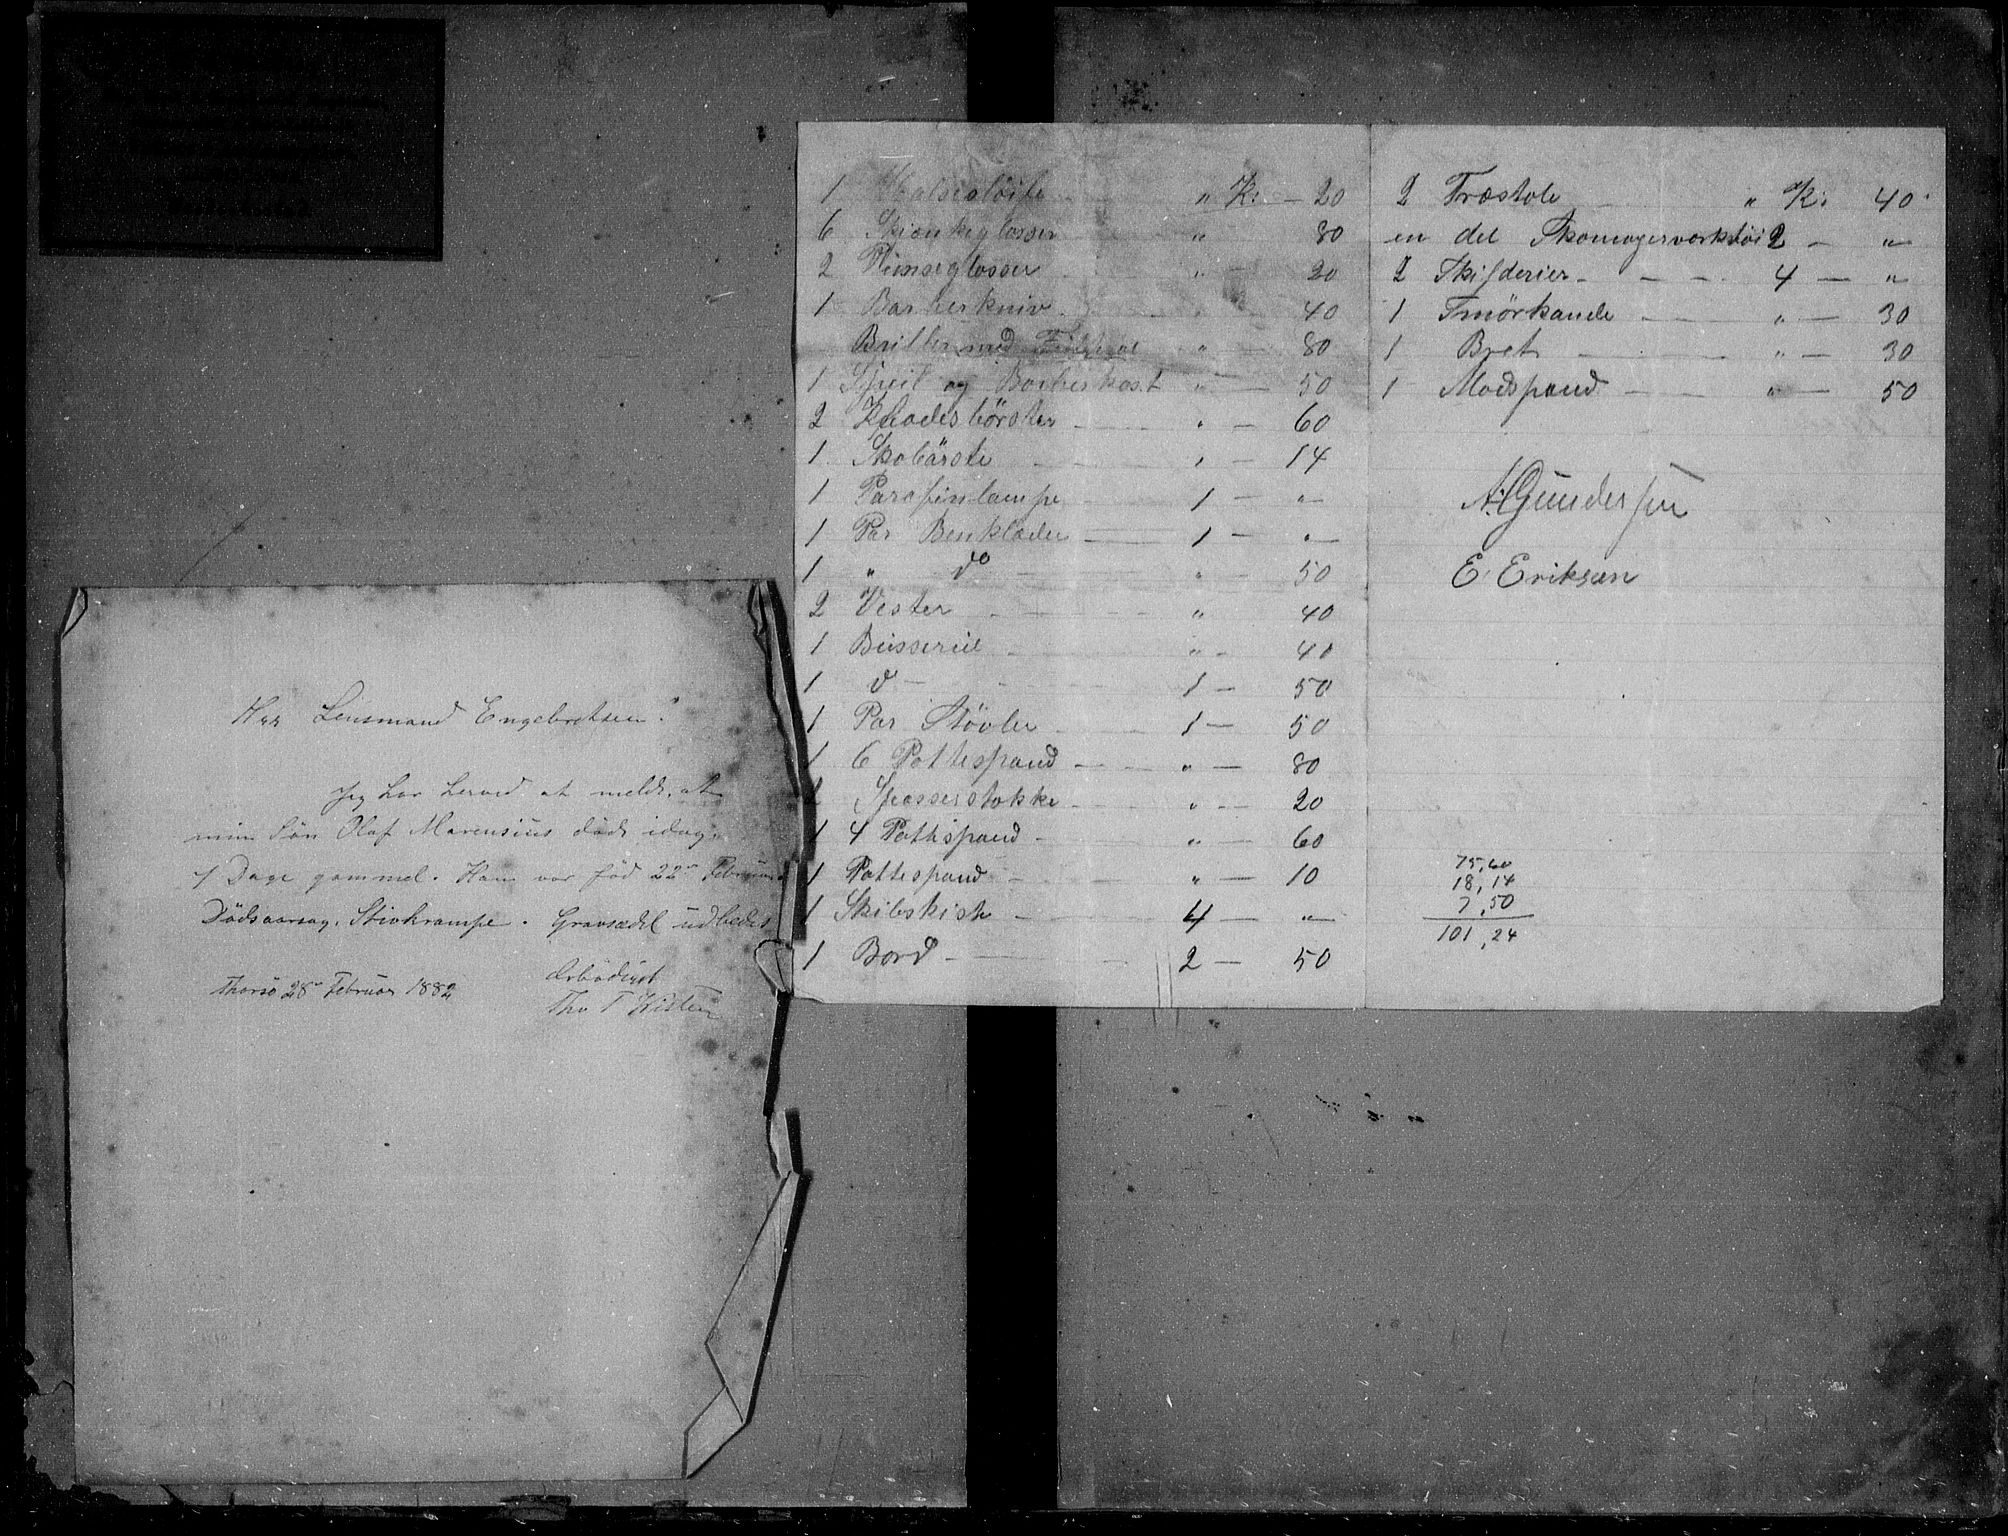 Herr Lensmand Engebretsen!
Jeg har herved at melde, at
min Søn Olaf Marensius døde idag,
7 Dage gammel. Han var fød 22de Februar
Dödsaarsag, Stivkrampe. Gravsædel udbedes
Thorsö 28de Februar 1882
Ærbödigst
Tho T
1 Halsesløife " Kr — 20
6 Skjænkeglasser " 80
2 Pumseglasser " — 20
1 Barberkniv " — 40
Briller med " — 80
1 Speil og Barberkost " — 50
2 Klædesbörster " — 60
1 Skobørste " — 14
1 Parafinlampe 1 — "
1 Par Benklæder 1 — "
1 " do " 50
2 Vester " 40
1 Busserul " — 40
1 do 1 — 50
1 Par Støvler 1 — 50
1 6 Pottespand " — 80
2 Spasserstokke " — 20
1 4 Pottespand " — 60
1 Pottespand " — 10
1 Skibskiste 4 — "
1 Bord 2 — 50
2 Træstole " Kr 40
en del Skomagerværktøi 2 — "
2 Skilderier 4 — "
1 Smörkande " — 30
1 Bret " — 30
1 Madspand " — 50
A. Gundersen
E. Eriksen
75,60
18,14
7,50
101,24